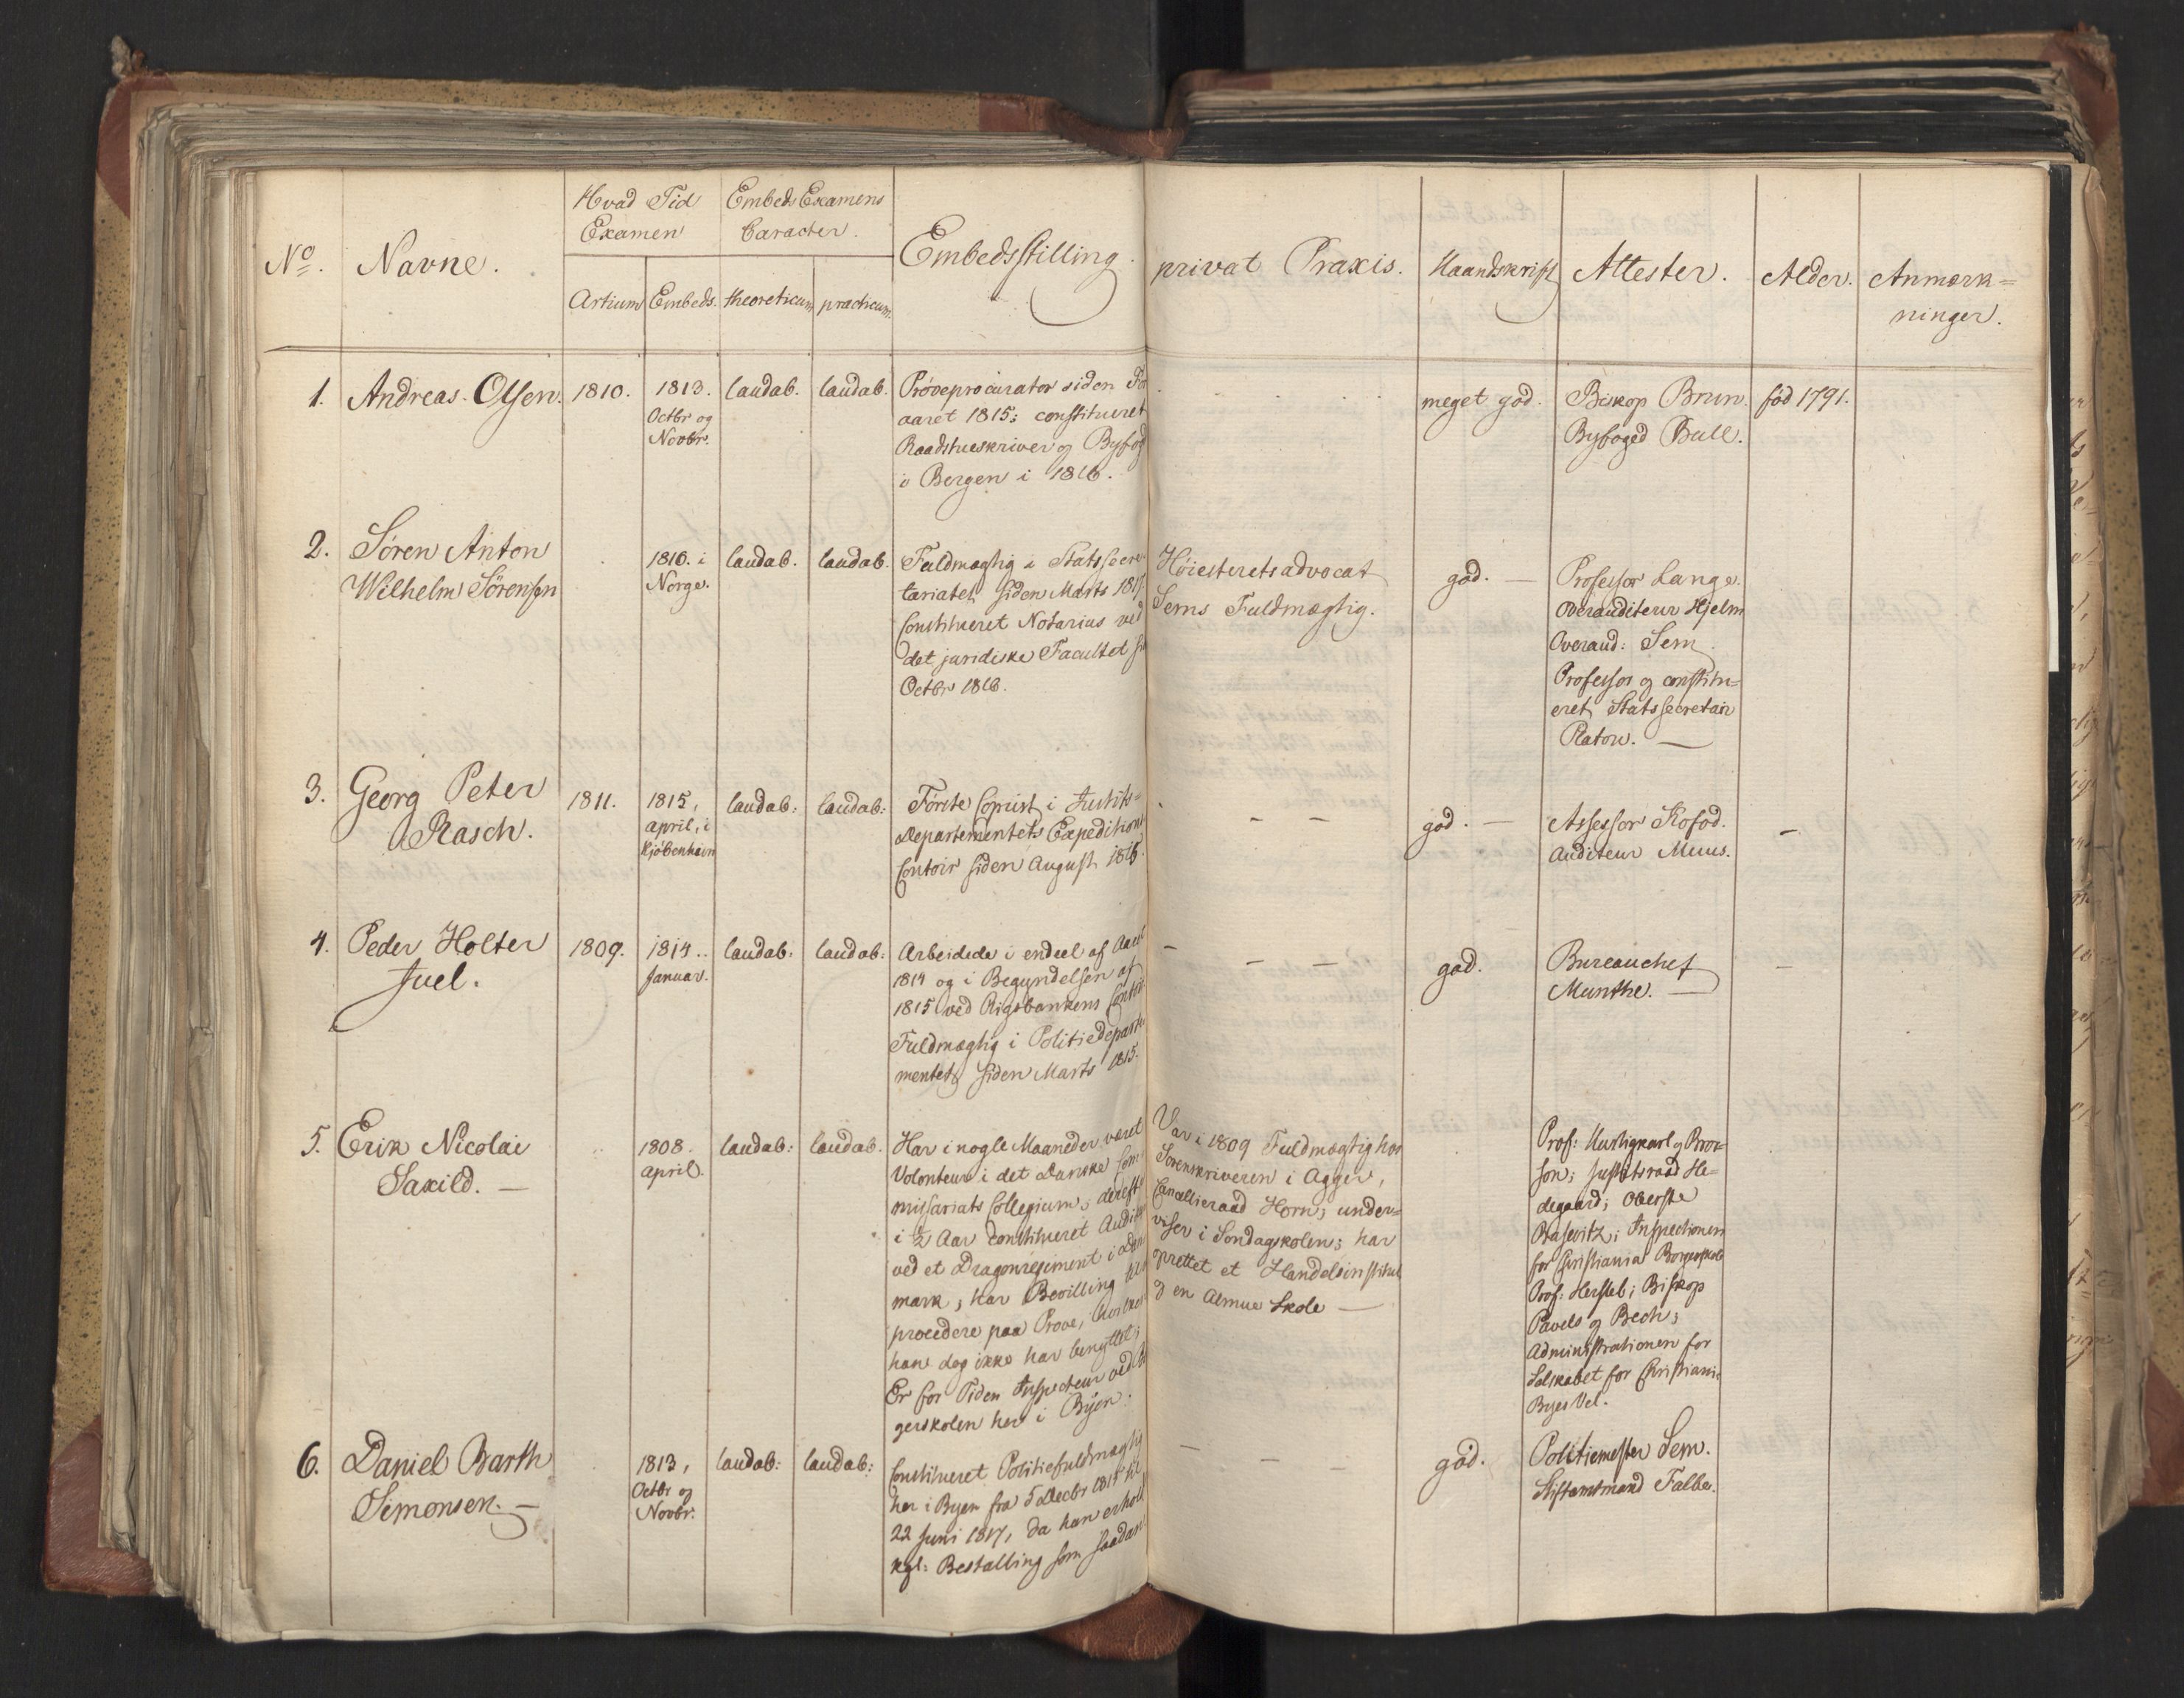 No. Navne. Hvad Tid Examen Embeds Examens Caracter. Embedsstilling.
Artium Embeds. theoreticum practicum.
privat Praxis. Haandskrift Attester. Alder. Anmærk=
ninger.
1. Andreas Olsen. 1810. 1813. laudab. laudab. Prøveprocurator siden
Octbr og
Novbr.
aaret 1815; constitueret
Raadstueskriver og
i Bergen i 1816.
meget god. Biskop Brun. fød 1791.
Byfoged Bull.
2. Søren Anton
Wilhelm Sørensen
1810. i
Norge.
laudab. laudab.
Fuldmægtig i Statssecre-
tariatet siden Marts 1817.
Constitueret Notarius ved
det juridiske Facultet
Octbr 1816.
Høiesteretsadvocat
Sems Fuldmægtig.
god. —
Professor Lange.
Overauditeur Hjelm
Overaud: Sem.
Professor og constitu=
eret Statssecretair
Platou. —
3. Georg Peter
Rasch.
1811. 1815,
april, i
Kjøbenhavn
laudab: laudab:
Første Copiist i Justits=
Departementets Expeditions
Contoir siden August
— — god. —
Assessor Kofod.
Auditeur Muus.
—
4. Peder Holter
Juel.
1809. 1814..
Januar.
laudab: laudab:
Arbeidede i endeel af Aaret
1814 og i Begyndelsen af
1815 ved Rigsbankens
Fuldmægtig i Politiedeparte
mentet siden Marts 1815.
— — — god.
Bureauchef
Munthe. —
—
5. Erik Nicolai
Saxild. —
1808.
april.
laudab: laudab.
Har i nogle Maaneder været
Volonteur i det Danske Com
missariats Collegium, derefter
i ½ Aar constitueret
ved et Dragonregiment i
mark, har Bevilling
procedere paa Prøve, hvilken
han dog ikke har benyttet;
Er for Tiden Inspecteur ved
gerskolen her i Byen.
Var i 1809 Fuldmægtig hos
Sorenskriveren i Agger,
Cancellieraad Horn; under=
viser i Søndagskolen; har
oprettet et Handelsinstitut
og en Almue Skole —
Prof: Hurtigkarl og Bror-
son; Justitsraad He=
degaard; Oberste
Basevitz; Inspectionen
for Christiania Borgerskole
Prof: Hersleb; Biskop
Pavels og Bech;
Administrationen for
Selskabet for Christiania
Byes Vel.
6. Daniel Barth
Simonsen. —
1813,
Octbr og
Novbr.
laudab: laudab:
Constitueret Politiefuldmægtig
her i Byen fra 5 Decbr 1815 til
22 Juni 1817, da han erholdt
kgl: Bestalling som saadan
— — — god.
Politiemester Sem.
Stiftamtmand Falbe.